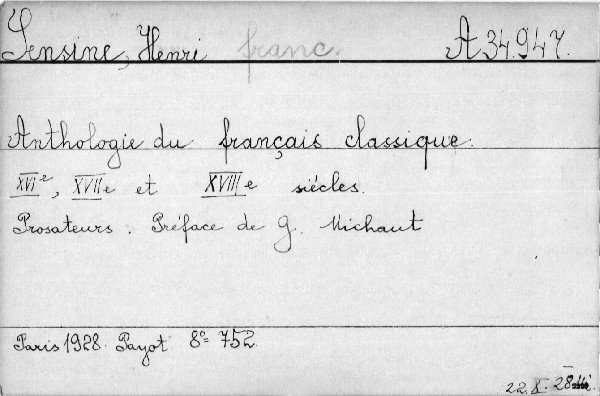 Sensine, Henri franc. A 34.947.
Anthologie du français classique.
XVIe, XVIIe et XVIIIe siécles.
Prosateurs. Préface de G. Michaut
Paris 1928. Payot 8° 752.
22. X. 28